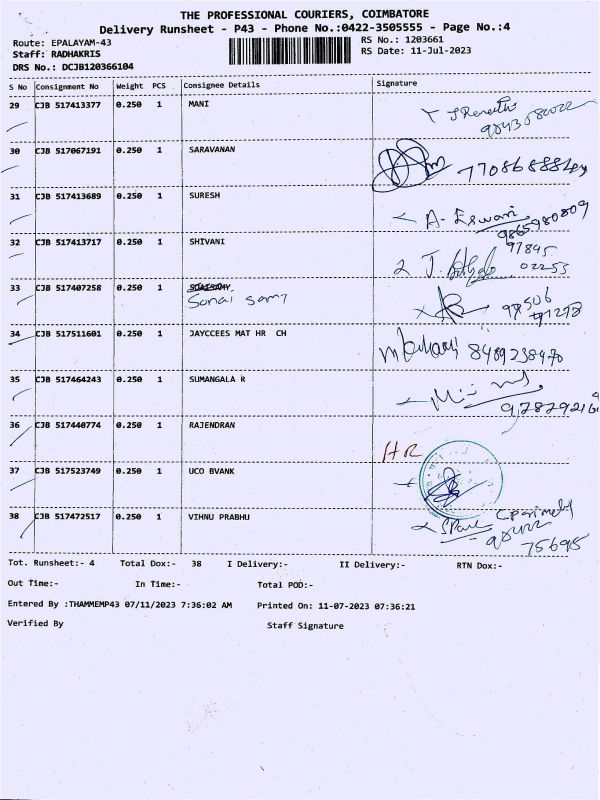 THE PROFESSIONAL COURIERS, COIMBATORE
Delivery Runsheet - P43 - Phone No.:0422-3505555 - Page No.:4
Route: EPALAYAM-43 RS No.: 1203661
Staff: RADHAKRIS RS Date: 11-Jul-2023
DRS No.: DCJB120366104
S No Consignment No Weight PCS Consignee Details Signature
29 CJB 517413377 0.250 1 MANI
30 CJB 517067191 0.250 1 SARAVANAN
31 CJB 517413689 0.250 1 SURESH A. Eswari
9865980809
32 CJB 517413717 0.250 1 SHIVANI 97895
02253
33 CJB 517407258 0.250 1
Sonai samy
34 CJB 517511601 0.250 1 JAYCCEES MAT HR CH 8489238470
35 CJB 517464243 0.250 1 SUMANGALA R
36 CJB 517440774 0.250 1 RAJENDRAN
HR
37 CJB 517523749 0.250 1 UCO BVANK
38 CJB 517472517 0.250 1 VIHNU PRABHU
75695
Tot. Runsheet:- 4 Total Dox:- 38 I Delivery:- II Delivery:- RTN Dox:-
Out Time:- In Time:- Total POD:-
Entered By :THAMMEMP43 07/11/2023 7:36:02 AM Printed On: 11-07-2023 07:36:21
Verified By Staff Signature